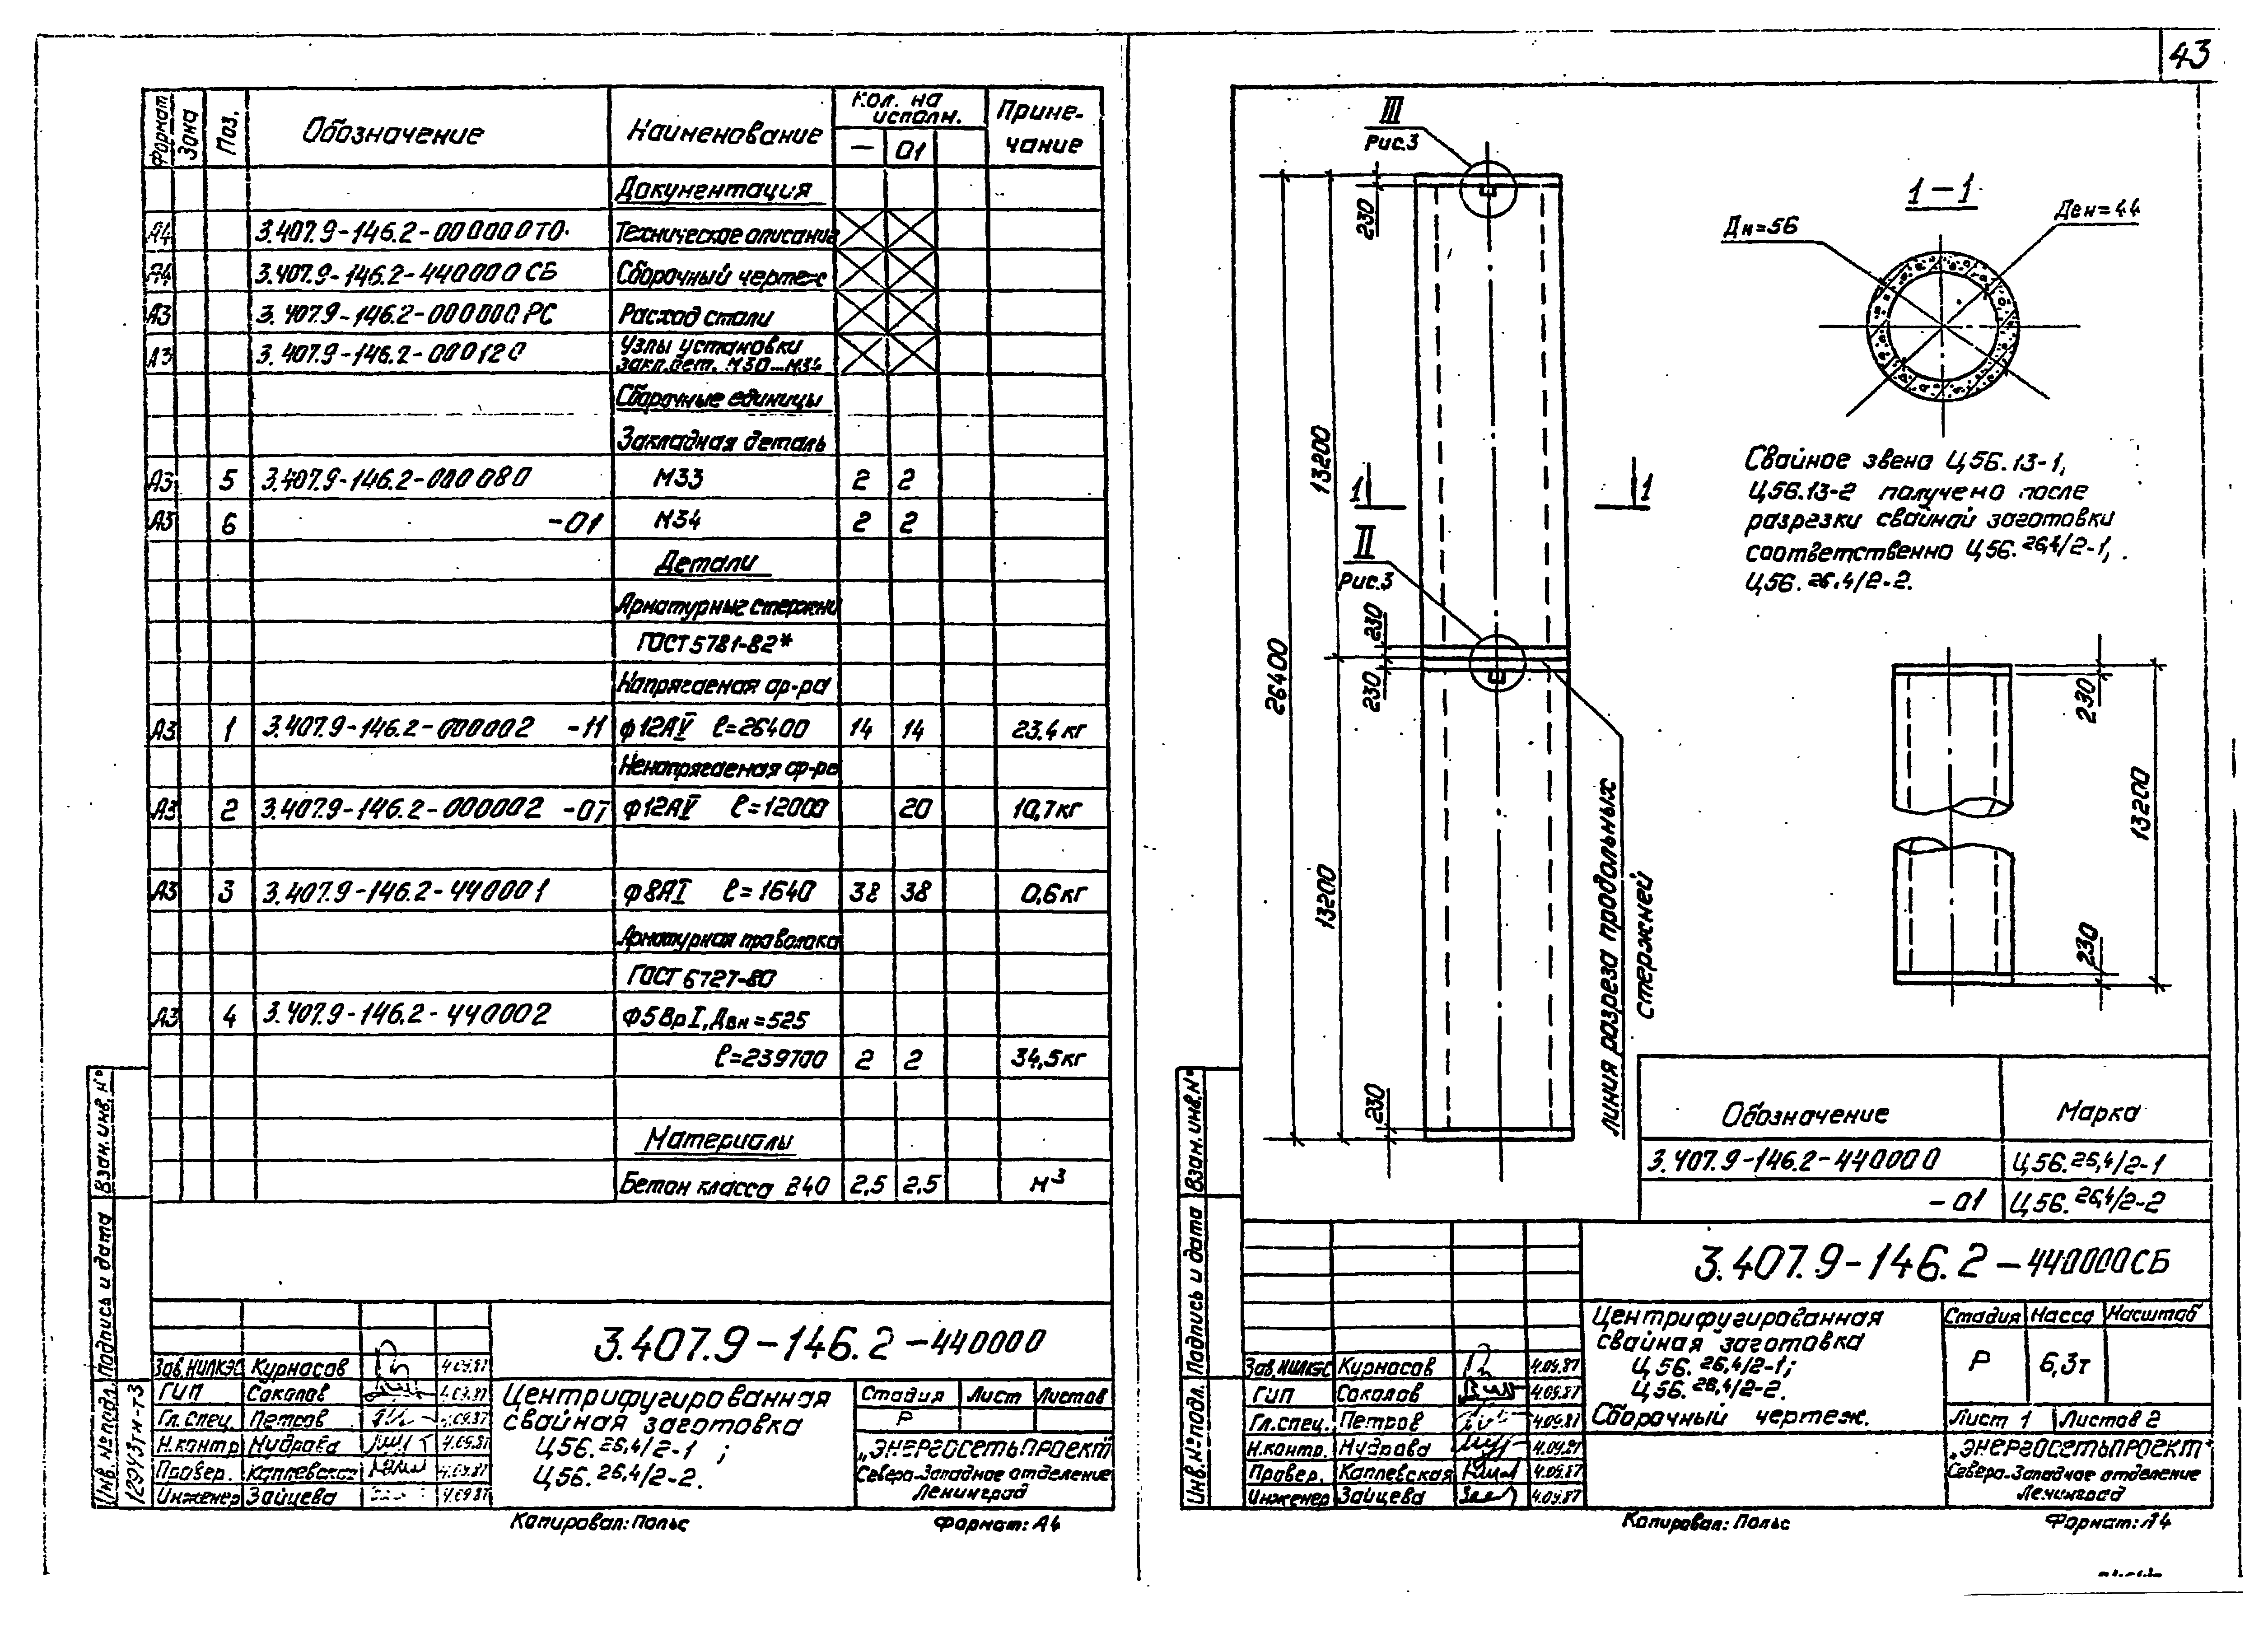 43
Формат Зона Поз. Обозначение Наименование Кол. на исполн. Приме-
— 01 чание
Документация
А4 3.407.9-146.2-000000ТО Техническое описание
А4 3.407.9-146.2-440000СБ Сборочный чертеж
А3 3.407.9-146.2-000000РС Расход стали
А3 3.407.9-146.2-000120 Узлы установки
закл.дет. М30...М34
Сборочные единицы
Закладная деталь
А3 5 3.407.9-146.2-000080 М33 2 2
А3 6 -01 М34 2 2
Детали
Арматурные стержни
ГОСТ 5781-82*
Напрягаемая ар-ра
А3 1 3.407.9-146.2-000002 -11 ф12АV ℓ=26400 14 14 23.4 кг
Ненапрягаемая ар-ра
А3 2 3.407.9-146.2-000002 -07 ф12АV ℓ=12000 20 10,7кг
А3 3 3.407.9-146.2-440001 ф8АI ℓ=1640 38 38 0,6кг
Арматурная проволока
ГОСТ 6727-80
А3 4 3.407.9-146.2-440002 ф5ВрI, Двн=525
ℓ=239700 2 2 34,5кг
Материалы
Бетон класса В40 2,5 2,5 м³
Взам.инв.№
Подпись и дата
Инв.№подл.
12943тм-т3
3.407.9-146.2-440000
Зав.НИЛКЭС Курносов 4.09.87
ГИП Соколов 4.09.87
Гл.спец. Петров 4.09.87
Н.контр. Нудрова 4.09.87
Провер. Каплевская 4.09.87
Инженер Зайцева 4.09.87
Центрифугированная
свайная заготовка
Ц56.26,4/2-1 ;
Ц56.26,4/2-2.
Стадия Лист Листов
Р
„ЭНЕРГОСЕТЬПРОЕКТ"
Северо-Западное отделение
Ленинград
Копировал: Польс Формат: А4
III
Рис.3
230
26400
13200
1 1
II
Рис.3
230
230
13200
230
линия разреза продольных
стержней
1-1
Дн=56
Двн=44
Свайное звено Ц56.13-1,
Ц56.13-2 получено после
разрезки свайной заготовки
соответственно Ц56.26,4/2-1,
Ц56.26,4/2-2.
230
13200
230
Обозначение Марка
3.407.9-146.2-440000 Ц56.26,4/2-1
-01 Ц56.26,4/2-2
Взам.инв.№
Подпись и дата
Инв.№подл.
3.407.9-146.2-440000СБ
Зав.НИЛКЭС Курносов 4.09.87
ГИП Соколов 4.09.87
Гл.спец. Петров 4.09.87
Н.контр. Нудрова 4.09.87
Провер. Каплевская 4.09.87
Инженер Зайцева 4.09.87
Центрифугированная
свайная заготовка
Ц56.26,4/2-1;
Ц56.26,4/2-2.
Сборочный чертеж.
Стадия Масса Масштаб
Р 6,3т
Лист 1 Листов 2
„ЭНЕРГОСЕТЬПРОЕКТ"
Северо-Западное отделение
Ленинград
Копировал: Польс Формат: А4